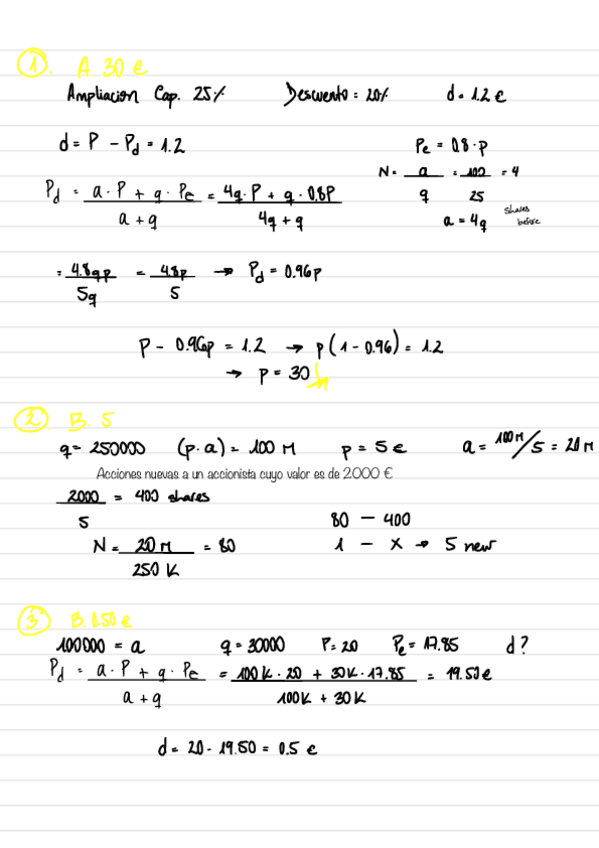 1. A. 30 €
Ampliacion Cap. 25% Descuento = 20% d = 1.2 €
d = P - Pd = 1.2 Pe = 0.8 · p
N = a/q = 100/25 = 4
Pd = (a · P + q · Pe)/(a + q) = (4q · P + q · 0.8P)/(4q + q) a = 4q shares before
= 4.8qp/5q = 4.8p/5 → Pd = 0.96p
p - 0.96p = 1.2 → p(1 - 0.96) = 1.2
→ p = 30
2. B. 5
q = 250000 (p · a) = 100 M p = 5 € a = 100M/5 = 20 M
Acciones nuevas a un accionista cuyo valor es de 2000 €
2000/5 = 400 shares
80 - 400
N = 20 M/250 K = 80 1 - x → 5 new
3. B. 0.50 €
100000 = a q = 30000 P = 20 Pe = 17.85 d?
Pd = (a · P + q · Pe)/(a + q) = (100K · 20 + 30K · 17.85)/(100K + 30K) = 19.50 €
d = 20 - 19.50 = 0.5 €